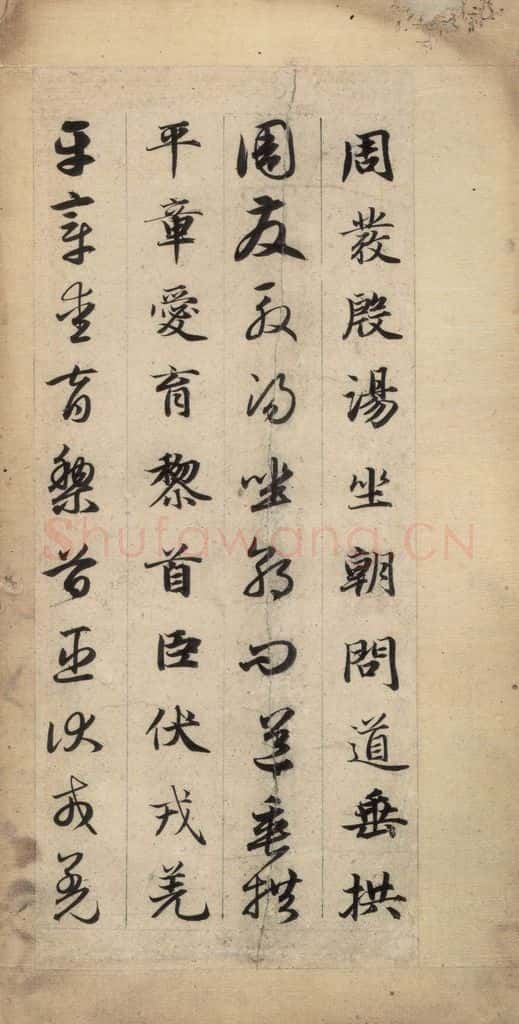 周發殷湯坐朝問道垂拱
周發殷湯坐朝問道垂拱
平章愛育黎首臣伏戎羌
平章愛育黎首臣伏戎羌
Shufawang.CN